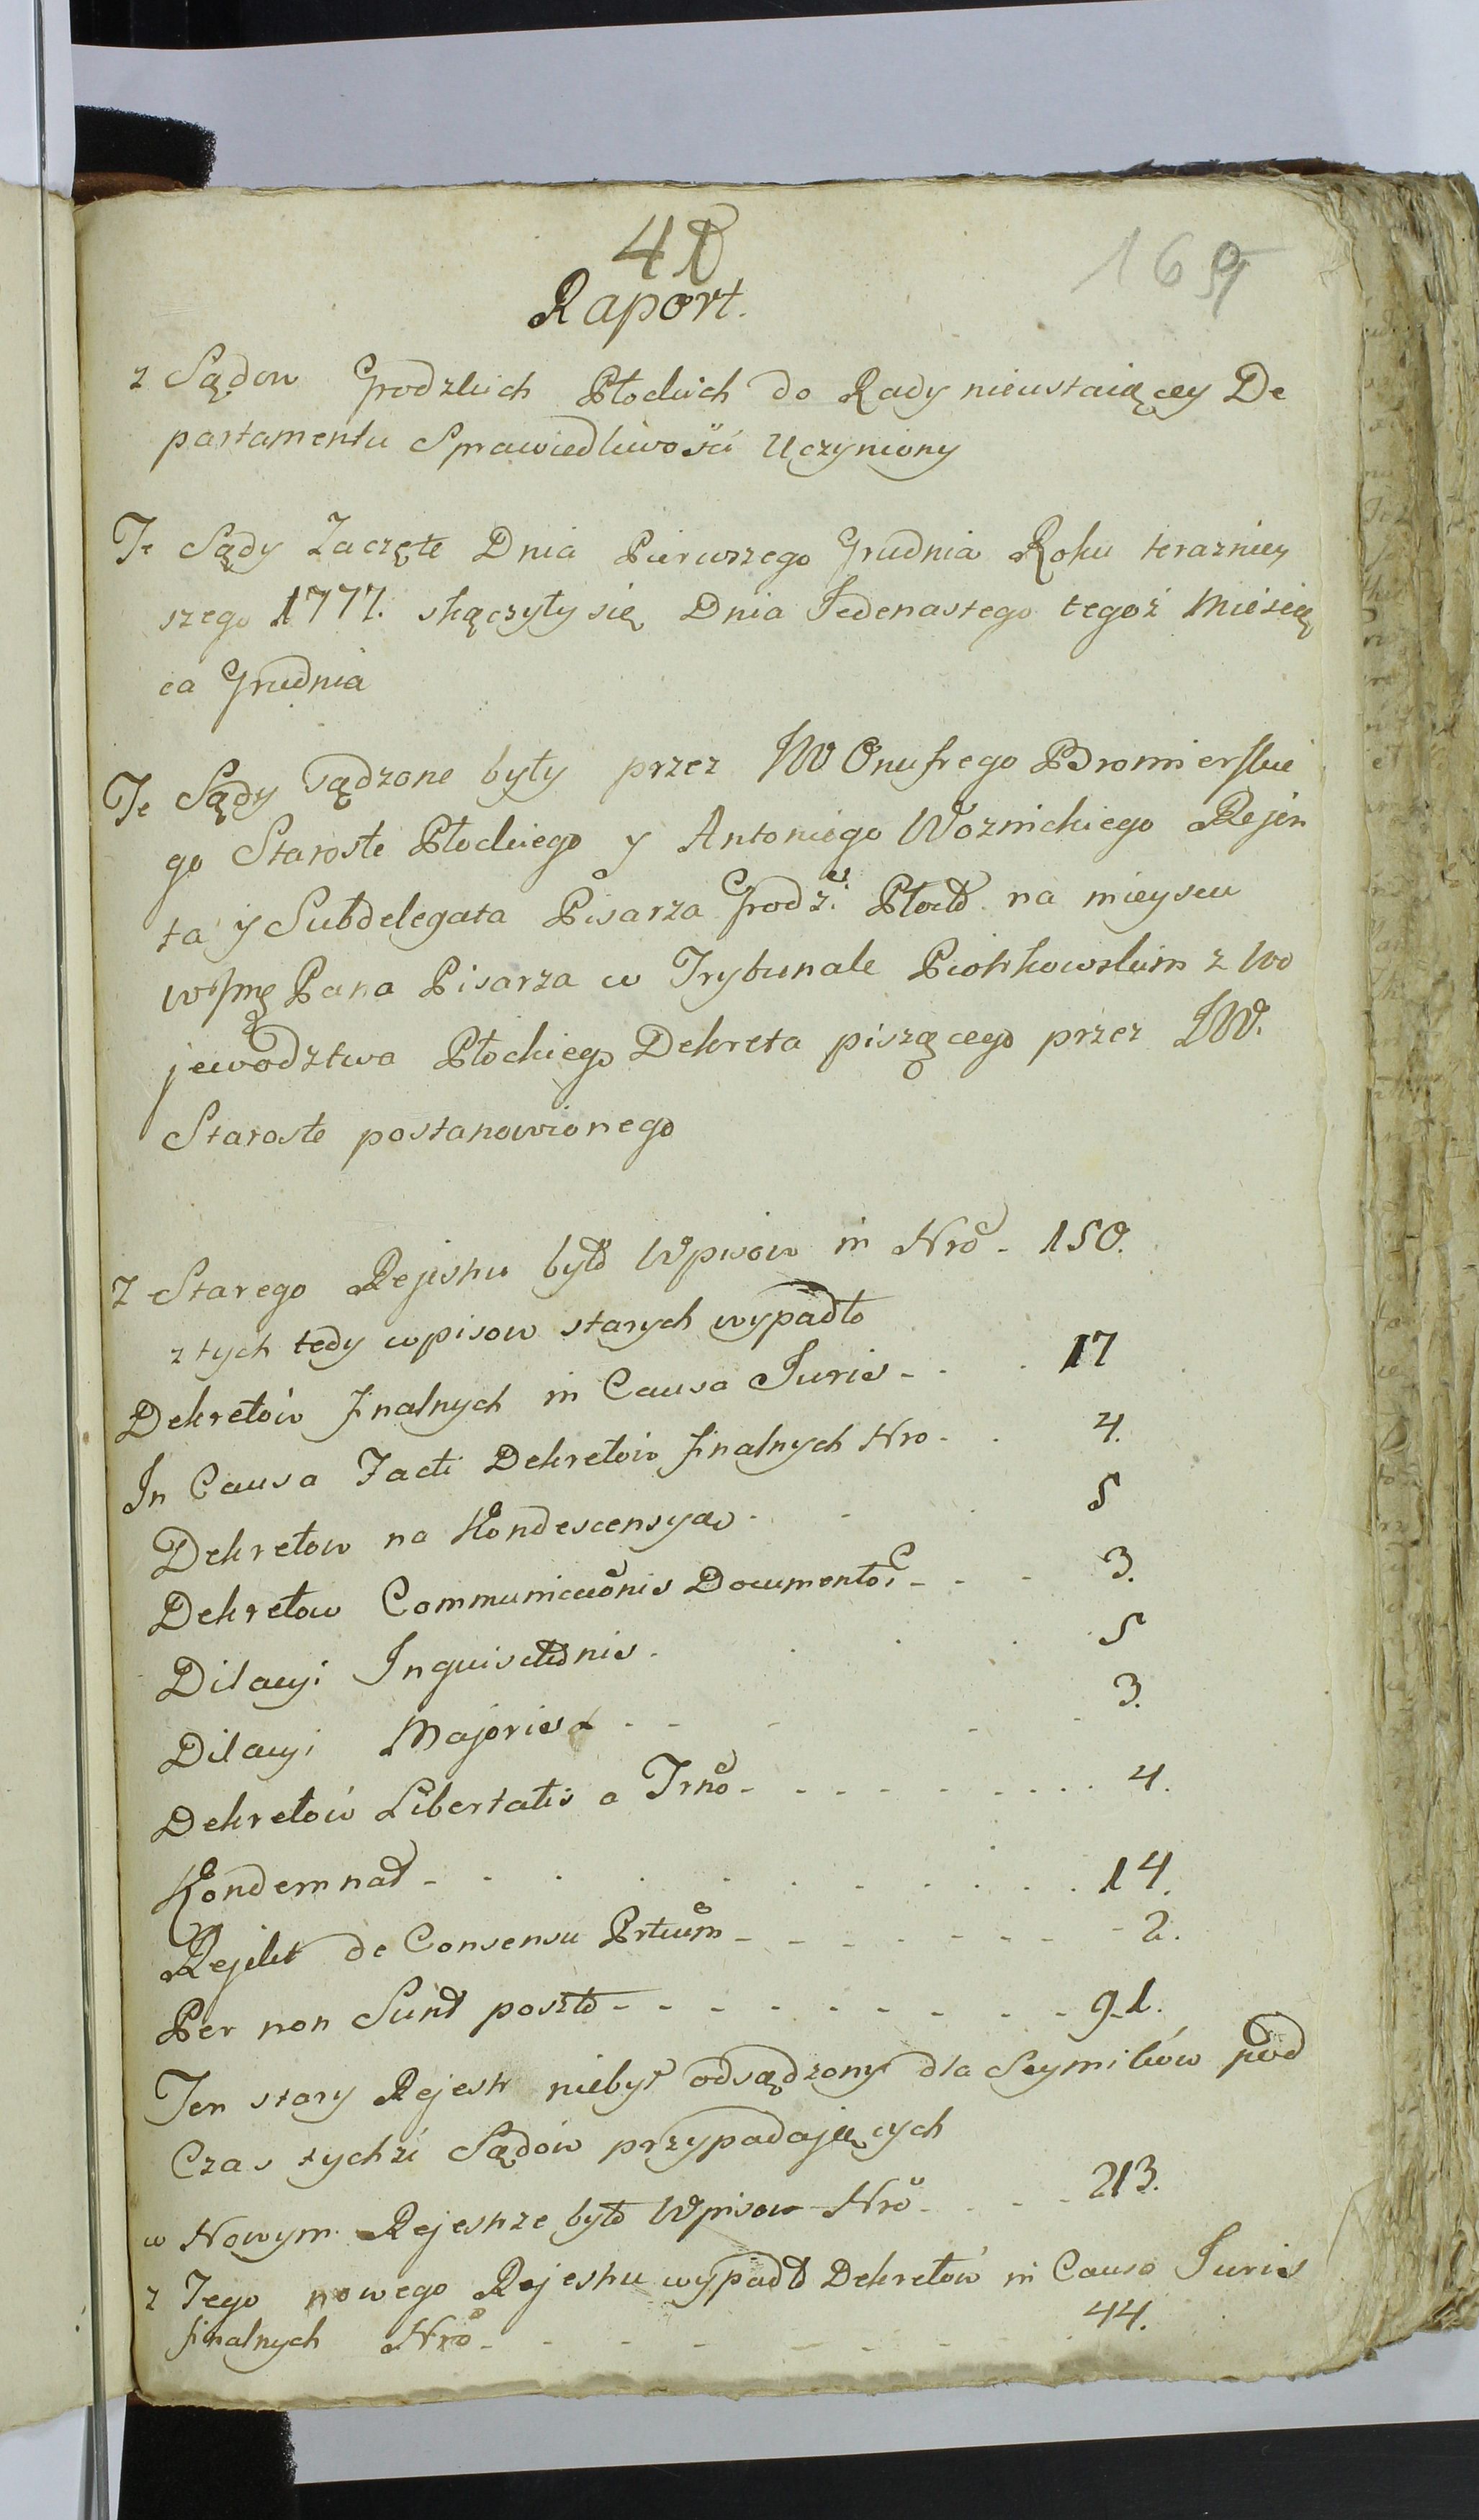 41
169
Raport.
z Sądow Grodzkich Płockich do Rady nieustaiącey De
partamentu Sprawiedliwości Uczyniony
Te Sądy Zaczęte Dnia Pierwszego Grudnia Roku terazniey
szego 1777. skączyły się Dnia Jedenastego tegoż Miesią
ca Grudnia
Te Sądy sądzone były przez JW Onufrego Bromierskie
go Staroste Płockiego y Antoniego Woznickiego Rejen
ta y Subdelegata Pisarza Grodz: Płock. na mieyscu
Pana Pisarza w Trybunale Piotrkowskim z Wo
jewodztwa Płockiego Dekreta piszącego przez JW.
Staroste postanowionego
Z Starego Rejestru było Wpisow in Nro - 150.
z tych tedy wpisow starych wypadło
Dekretów finalnych in Causa Juris - . . 17
In Causa Facti Dekretów finalnych Nro - . 4.
Dekretow na Kondescensyas . . . 5
Dekretow Communicaõnis Documento - - - 3.
Dilacyi Inquisitõnis . . . . 5
Dilacyi Majoris - - - - - 3.
Dekretów Libertatis a Trño - - - - - - . . . 4.
Kondemnat - . . . . . . . . . . 14.
Rejekt de Consensu Prtium - - - - - - - 2.
Per non Sunt poszło - - - - - - - - - 91.
Ten stary Rejestr niebył odsądzony dla Seymików pod
Czas tychżi Sądów przypadających
w Nowym Rejestrze było Wpisow Nro - . - - 213.
z Tego nowego Rejestru wypadło Dekretów in Causa Juris
finalnych Nro - - - - - - - . 44.